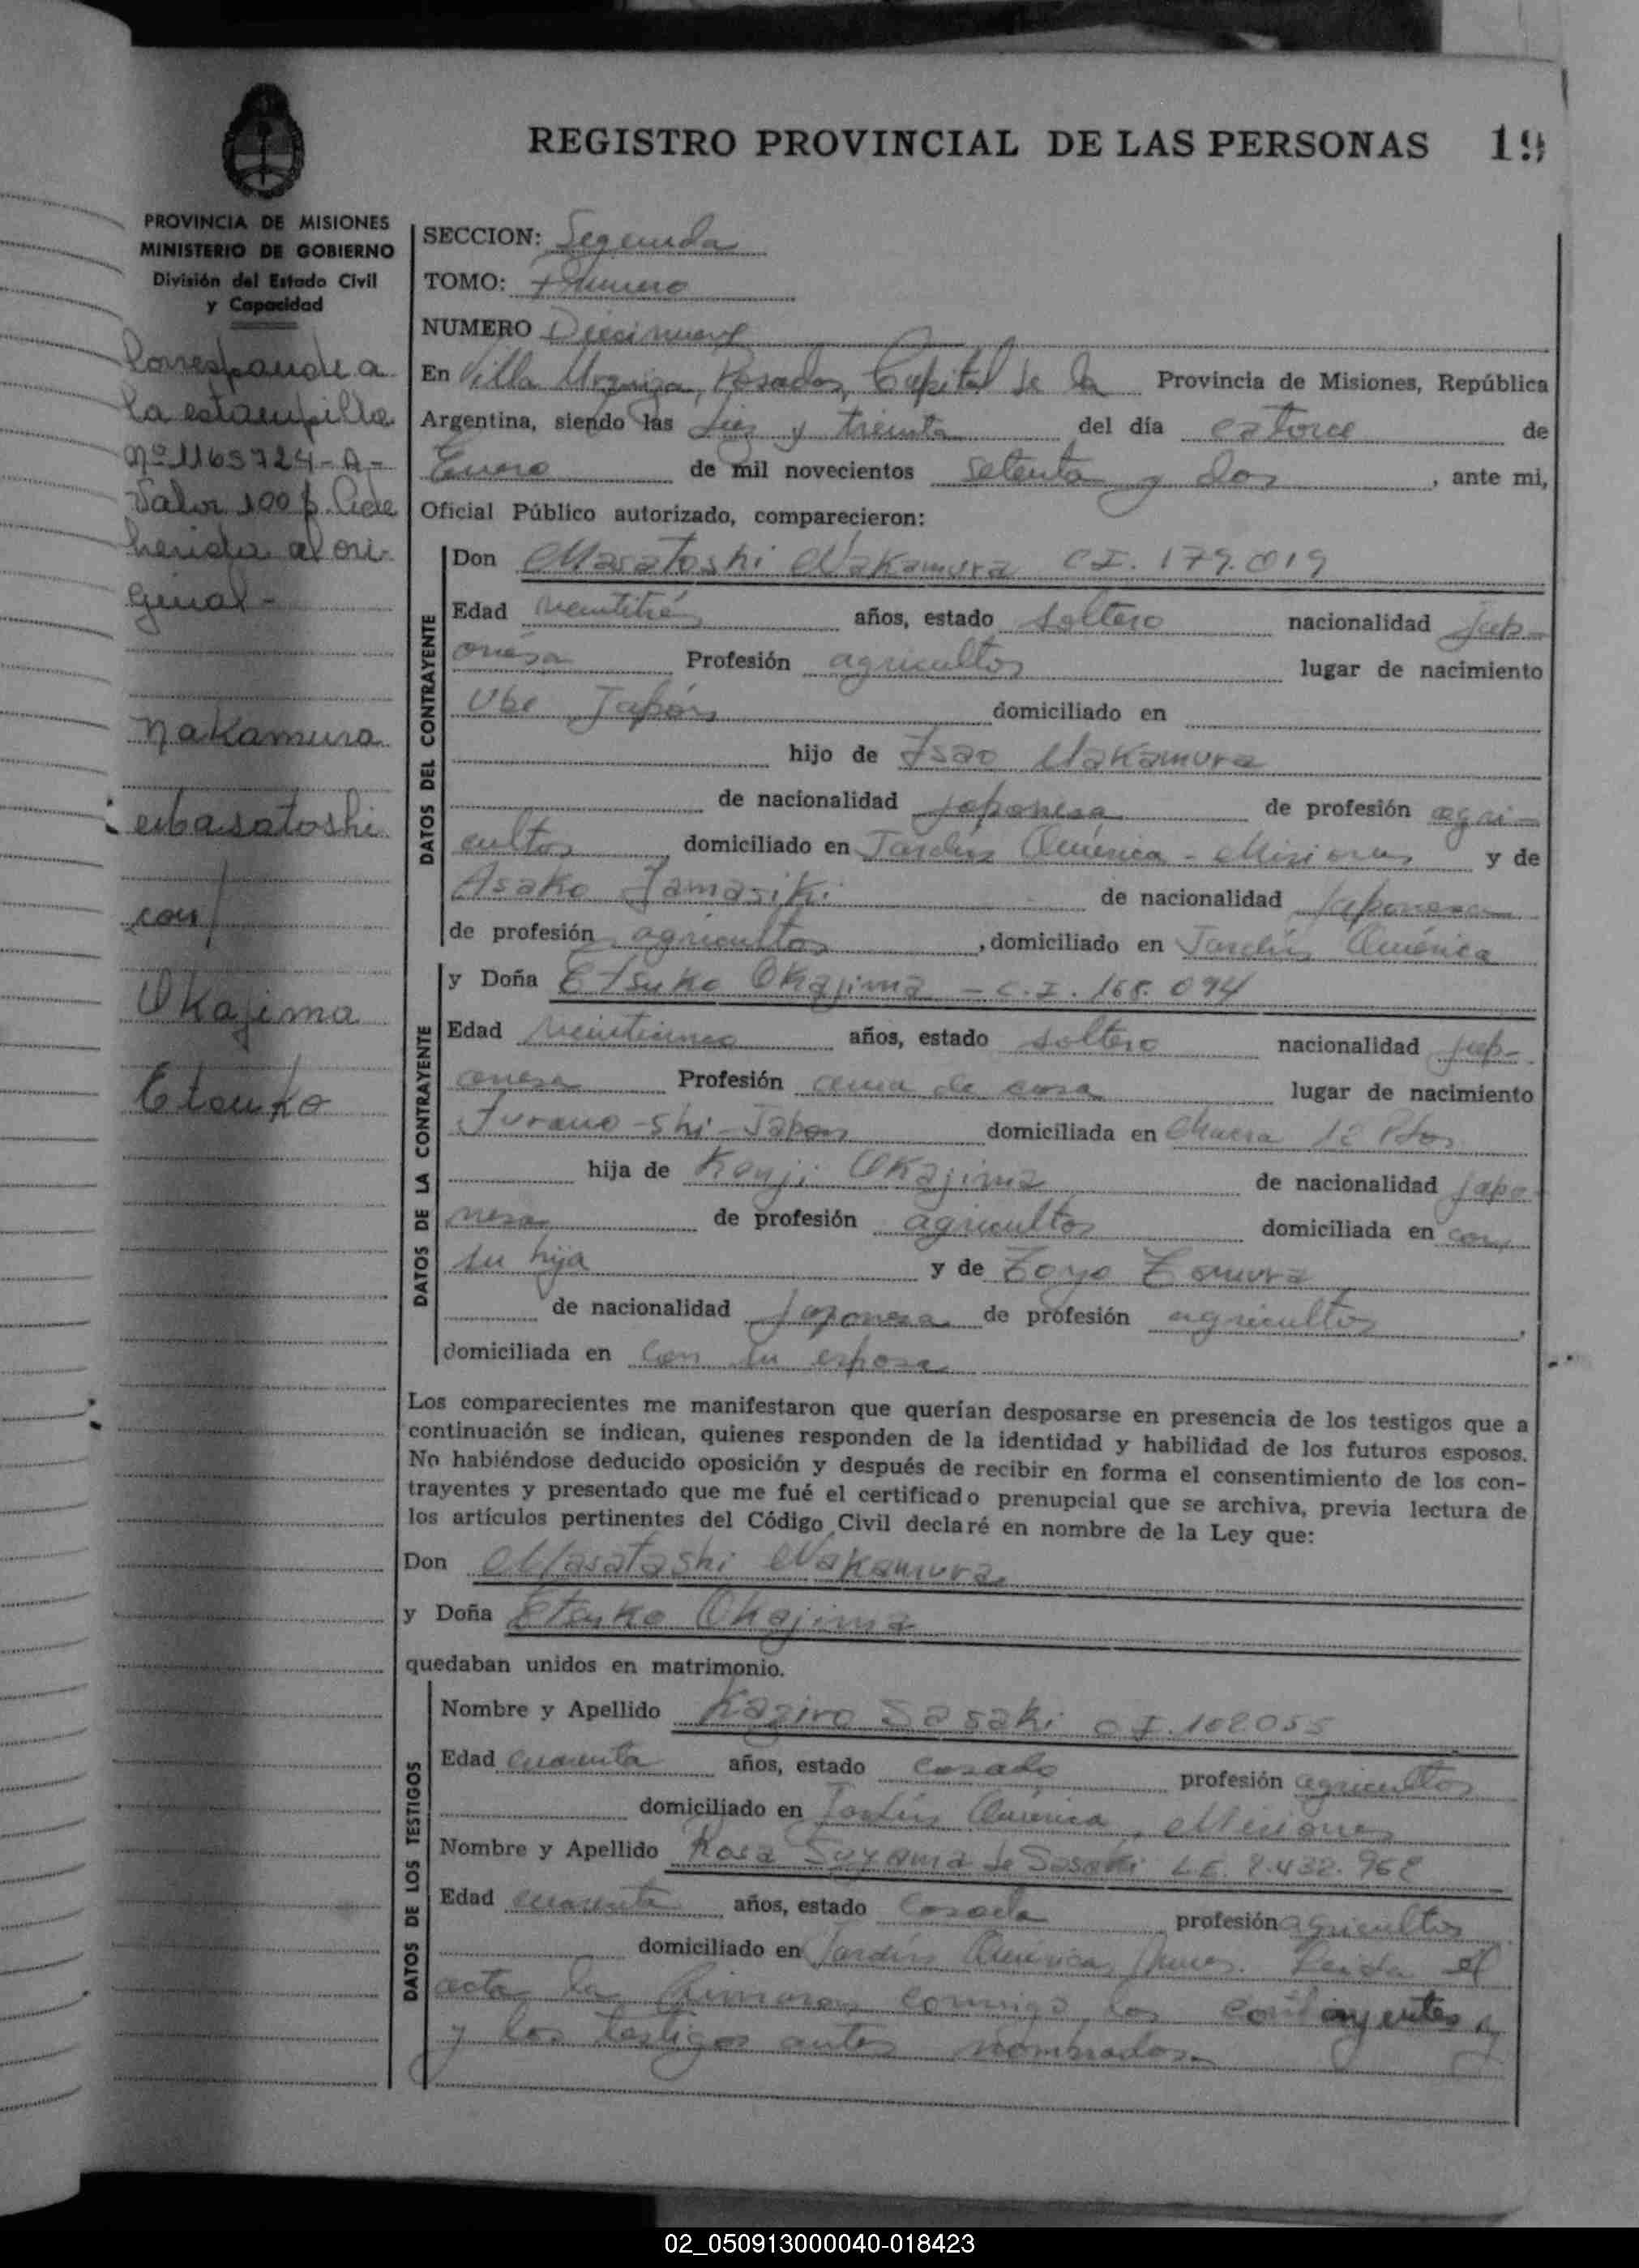 REGISTRO PROVINCIAL DE LAS PERSONAS 19
PROVINCIA DE MISIONES
MINISTERIO DE GOBIERNO
División del Estado Civil
y Capacidad
Corresponde a
la estampilla
nº 1163724-A-
Valor 100 $
herida al ori-
ginal-
Nakamura
Masatoshi
con/
Okajima
Etsuko
SECCION: Segunda
TOMO: Primero
NUMERO Diecinueve
En Villa Urquiza, Posadas, Capital de la Provincia de Misiones, República
Argentina, siendo las diez y treinta del día catorce de
Enero de mil novecientos setenta y dos, ante mi,
Oficial Público autorizado, comparecieron:
DATOS DEL CONTRAYENTE
Don Masatoshi Nakamura C.I. 179.019
Edad veintitrés años, estado soltero nacionalidad jap-
onesa Profesión agricultor lugar de nacimiento
Ube Japón domiciliado en
hijo de Isao Nakamura
de nacionalidad japonesa de profesión agri-
cultor domiciliado en Jardín América - Misiones y de
Asako Jamasiki de nacionalidad japonesa
de profesión agricultor, domiciliado en Jardín América
DATOS DE LA CONTRAYENTE
y Doña Etsuko Okajima - C.I. 168.094
Edad veinticinco años, estado soltero nacionalidad jap-
onesa Profesión ama de casa lugar de nacimiento
Furano-shi-Japon domiciliada en Chacra
hija de Kenji Okajima de nacionalidad japo-
nesa de profesión agricultor domiciliada en con
su hija y de Toyo
de nacionalidad japonesa de profesión agricultor,
domiciliada en Con su esposo
Los comparecientes me manifestaron que querían desposarse en presencia de los testigos que a
continuación se indican, quienes responden de la identidad y habilidad de los futuros esposos.
No habiéndose deducido oposición y después de recibir en forma el consentimiento de los con-
trayentes y presentado que me fué el certificado prenupcial que se archiva, previa lectura de
los artículos pertinentes del Código Civil declaré en nombre de la Ley que:
Don Masatashi Nakamura
y Doña Etsuko Okajima
quedaban unidos en matrimonio.
DATOS DE LOS TESTIGOS
Nombre y Apellido Kaziro Sasaki C.I. 102055
Edad cuarenta años, estado casado profesión agricultor
domiciliado en Jardín América, Misiones
Nombre y Apellido Rosa de Sasaki L.E. 2.432.962
Edad cuarenta años, estado Casada profesión agricultor
domiciliado en Jardín América, Mnes. Leida el
acta la firmaron conmigo los contrayentes y
y los testigos antes nombrados.
02_050913000040-018423